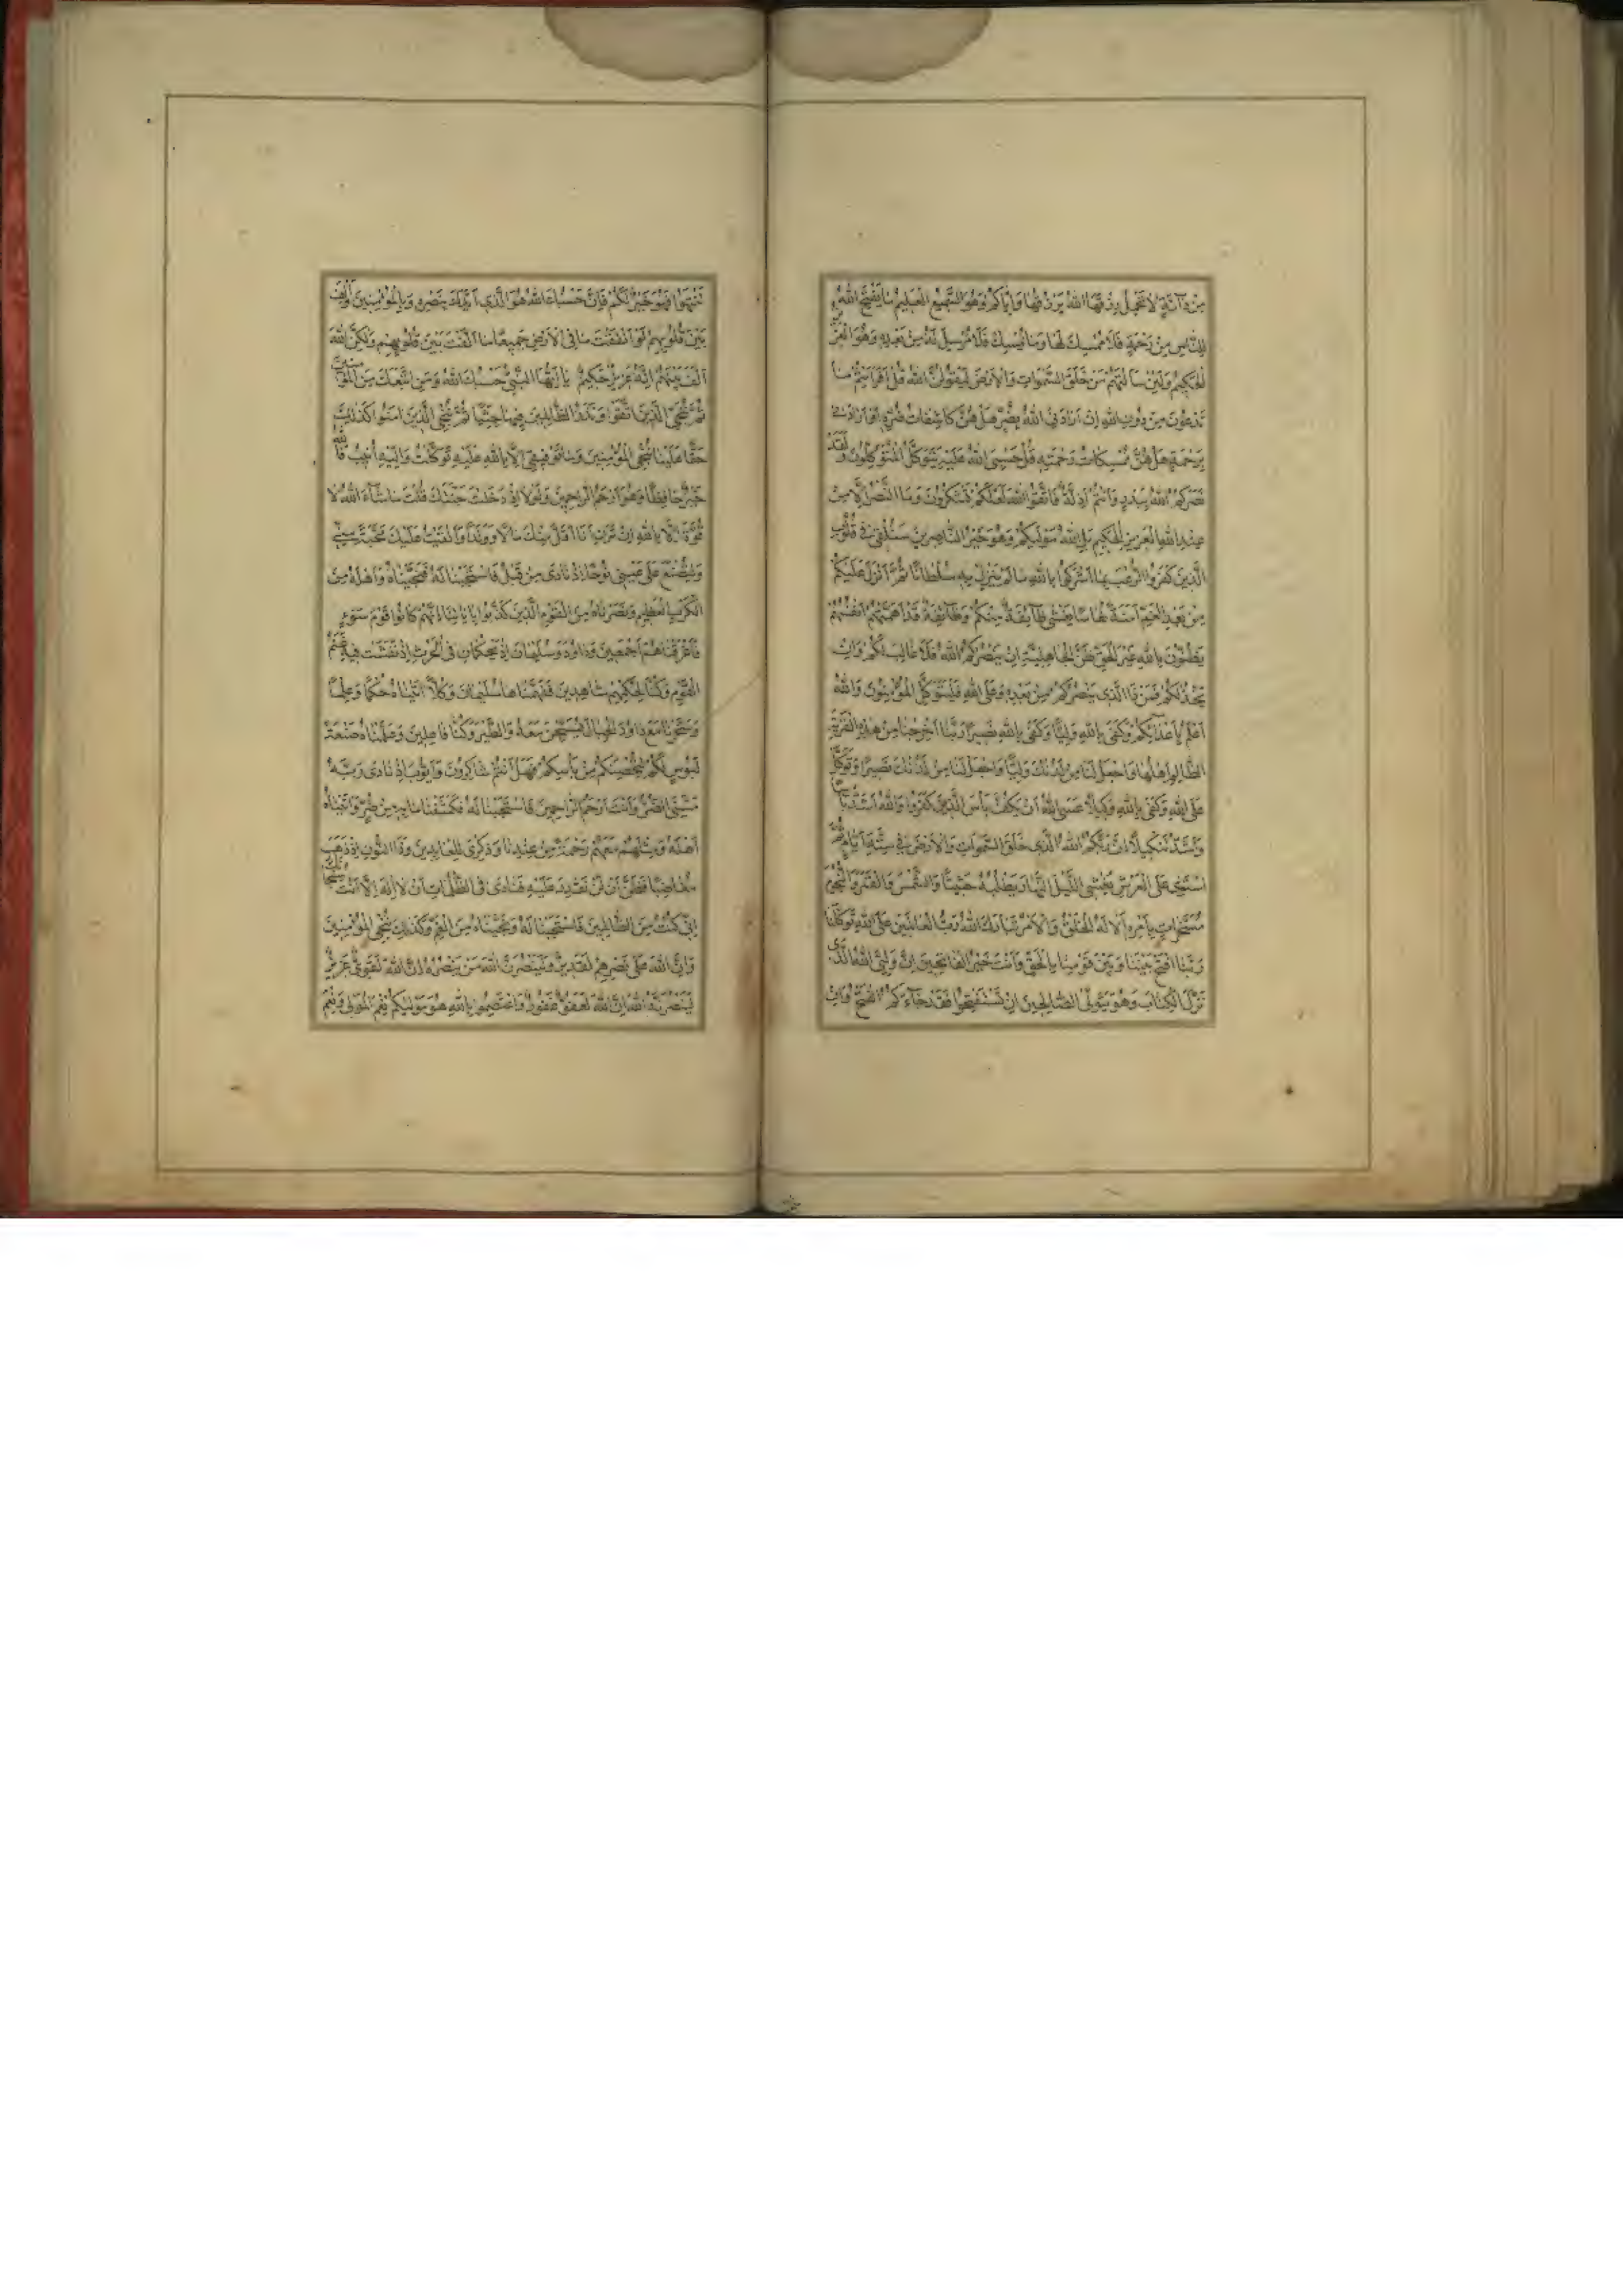 مِنْ دَآبَّةٍ لَا تَحْمِلُ رِزْقَهَا اللهُ يَرْزُقُهَا وَاِيَّاكُمْ وَهُوَ السَّمِيعُ الْعَلِيمُ مَا يَفْتَحِ اللهُ
لِلنَّاسِ مِنْ رَحْمَةٍ فَلَا مُمْسِكَ لَهَا وَمَا يُمْسِكْ فَلَا مُرْسِلَ لَهُ مِنْ بَعْدِهِ وَهُوَ الْعَزِيزُ
الْحَكِيمُ وَلَئِنْ سَاَلْتَهُمْ مَنْ خَلَقَ السَّمٰوَاتِ وَالْاَرْضَ لَيَقُولُنَّ اللهُ قُلْ اَفَرَاَيْتُمْ مَا
تَدْعُونَ مِنْ دُونِ اللهِ اِنْ اَرَادَنِيَ اللهُ بِضُرٍّ هَلْ هُنَّ كَاشِفَاتُ ضُرِّهِ اَوْ اَرَادَنِي
بِرَحْمَةٍ هَلْ هُنَّ مُمْسِكَاتُ رَحْمَتِهِ قُلْ حَسْبِيَ اللهُ عَلَيْهِ يَتَوَكَّلُ الْمُتَوَكِّلُونَ وَلَقَدْ
نَصَرَكُمُ اللهُ بِبَدْرٍ وَاَنْتُمْ اَذِلَّةٌ فَاتَّقُوا اللهَ لَعَلَّكُمْ تَشْكُرُونَ وَمَا النَّصْرُ اِلَّا مِنْ
عِنْدِ اللهِ الْعَزِيزِ الْحَكِيمِ بَلِ اللهُ مَوْلٰيكُمْ وَهُوَ خَيْرُ النَّاصِرِينَ سَنُلْقِي فِي قُلُوبِ
الَّذِينَ كَفَرُوا الرُّعْبَ بِمَا اَشْرَكُوا بِاللهِ مَا لَمْ يُنَزِّلْ بِهِ سُلْطَانًا ثُمَّ اَنْزَلَ عَلَيْكُمْ
مِنْ بَعْدِ الْغَمِّ اَمَنَةً نُعَاسًا يَغْشٰى طَآئِفَةً مِنْكُمْ وَطَآئِفَةٌ قَدْ اَهَمَّتْهُمْ اَنْفُسُهُمْ
يَظُنُّونَ بِاللهِ غَيْرَ الْحَقِّ ظَنَّ الْجَاهِلِيَّةِ اِنْ يَنْصُرْكُمُ اللهُ فَلَا غَالِبَ لَكُمْ وَاِنْ
يَخْذُلْكُمْ فَمَنْ ذَا الَّذِي يَنْصُرُكُمْ مِنْ بَعْدِهِ وَعَلَى اللهِ فَلْيَتَوَكَّلِ الْمُؤْمِنُونَ وَاللهُ
اَعْلَمُ بِاَعْدَائِكُمْ وَكَفٰى بِاللهِ وَلِيًّا وَكَفٰى بِاللهِ نَصِيرًا رَبَّنَا اَخْرِجْنَا مِنْ هٰذِهِ الْقَرْيَةِ
الظَّالِمِ اَهْلُهَا وَاجْعَلْ لَنَا مِنْ لَدُنْكَ وَلِيًّا وَاجْعَلْ لَنَا مِنْ لَدُنْكَ نَصِيرًا وَتَوَكَّلْ
عَلَى اللهِ وَكَفٰى بِاللهِ وَكِيلًا عَسَى اللهُ اَنْ يَكُفَّ بَأْسَ الَّذِينَ كَفَرُوا وَاللهُ اَشَدُّ بَأْسًا
وَاَشَدُّ تَنْكِيلًا اِنَّ رَبَّكُمُ اللهُ الَّذِي خَلَقَ السَّمٰوَاتِ وَالْاَرْضَ فِي سِتَّةِ اَيَّامٍ ثُمَّ
اسْتَوٰى عَلَى الْعَرْشِ يُغْشِي اللَّيْلَ النَّهَارَ يَطْلُبُهُ حَثِيثًا وَالشَّمْسَ وَالْقَمَرَ وَالنُّجُومَ
مُسَخَّرَاتٍ بِاَمْرِهِ اَلَا لَهُ الْخَلْقُ وَالْاَمْرُ تَبَارَكَ اللهُ رَبُّ الْعَالَمِينَ عَلَى اللهِ تَوَكَّلْنَا
رَبَّنَا افْتَحْ بَيْنَنَا وَبَيْنَ قَوْمِنَا بِالْحَقِّ وَاَنْتَ خَيْرُ الْفَاتِحِينَ اِنَّ وَلِيِّيَ اللهُ الَّذِي
نَزَّلَ الْكِتَابَ وَهُوَ يَتَوَلَّى الصَّالِحِينَ اِنْ تَسْتَفْتِحُوا فَقَدْ جَآءَكُمُ الْفَتْحُ وَاِنْ
تَنْتَهُوا فَهُوَ خَيْرٌ لَكُمْ فَاِنَّ حَسْبَكَ اللهُ هُوَ الَّذِي اَيَّدَكَ بِنَصْرِهِ وَبِالْمُؤْمِنِينَ وَاَلَّفَ
بَيْنَ قُلُوبِهِمْ لَوْ اَنْفَقْتَ مَا فِي الْاَرْضِ جَمِيعًا مَا اَلَّفْتَ بَيْنَ قُلُوبِهِمْ وَلٰكِنَّ اللهَ
اَلَّفَ بَيْنَهُمْ اِنَّهُ عَزِيزٌ حَكِيمٌ يَا اَيُّهَا النَّبِيُّ حَسْبُكَ اللهُ وَمَنِ اتَّبَعَكَ مِنَ الْمُؤْمِنِينَ
ثُمَّ نُنَجِّي الَّذِينَ اتَّقَوْا وَنَذَرُ الظَّالِمِينَ فِيهَا جِثِيًّا ثُمَّ نُنَجِّي الَّذِينَ اٰمَنُوا كَذٰلِكَ
حَقًّا عَلَيْنَا نُنْجِ الْمُؤْمِنِينَ وَمَا تَوْفِيقِي اِلَّا بِاللهِ عَلَيْهِ تَوَكَّلْتُ وَاِلَيْهِ اُنِيبُ فَاللهُ
خَيْرٌ حَافِظًا وَهُوَ اَرْحَمُ الرَّاحِمِينَ وَلَوْلَا اِذْ دَخَلْتَ جَنَّتَكَ قُلْتَ مَا شَآءَ اللهُ لَا
قُوَّةَ اِلَّا بِاللهِ اِنْ تَرَنِ اَنَا اَقَلَّ مِنْكَ مَالًا وَوَلَدًا وَاَلْقَيْتُ عَلَيْكَ مَحَبَّةً مِنِّي
وَلِتُصْنَعَ عَلٰى عَيْنِي نُوحًا اِذْ نَادٰى مِنْ قَبْلُ فَاسْتَجَبْنَا لَهُ فَنَجَّيْنَاهُ وَاَهْلَهُ مِنَ
الْكَرْبِ الْعَظِيمِ وَنَصَرْنَاهُ مِنَ الْقَوْمِ الَّذِينَ كَذَّبُوا بِاٰيَاتِنَا اِنَّهُمْ كَانُوا قَوْمَ سَوْءٍ
فَاَغْرَقْنَاهُمْ اَجْمَعِينَ وَدَاوُدَ وَسُلَيْمَانَ اِذْ يَحْكُمَانِ فِي الْحَرْثِ اِذْ نَفَشَتْ فِيهِ غَنَمُ
الْقَوْمِ وَكُنَّا لِحُكْمِهِمْ شَاهِدِينَ فَفَهَّمْنَاهَا سُلَيْمَانَ وَكُلًّا اٰتَيْنَاهُ حُكْمًا وَعِلْمًا
وَسَخَّرْنَا مَعَ دَاوُدَ الْجِبَالَ يُسَبِّحْنَ مَعَهُ وَالطَّيْرَ وَكُنَّا فَاعِلِينَ وَعَلَّمْنَاهُ صَنْعَةَ
لَبُوسٍ لَكُمْ لِتُحْصِنَكُمْ مِنْ بَأْسِكُمْ فَهَلْ اَنْتُمْ شَاكِرُونَ وَاَيُّوبَ اِذْ نَادٰى رَبَّهُ
مَسَّنِيَ الضُّرُّ وَاَنْتَ اَرْحَمُ الرَّاحِمِينَ فَاسْتَجَبْنَا لَهُ فَكَشَفْنَا مَا بِهِ مِنْ ضُرٍّ وَاٰتَيْنَاهُ
اَهْلَهُ وَمِثْلَهُمْ مَعَهُمْ رَحْمَةً مِنْ عِنْدِنَا وَذِكْرٰى لِلْعَابِدِينَ وَذَا النُّونِ اِذْ ذَهَبَ
مُغَاضِبًا فَظَنَّ اَنْ لَنْ نَقْدِرَ عَلَيْهِ فَنَادٰى فِي الظُّلُمَاتِ اَنْ لَا اِلٰهَ اِلَّا اَنْتَ سُبْحَانَكَ
اِنِّي كُنْتُ مِنَ الظَّالِمِينَ فَاسْتَجَبْنَا لَهُ وَنَجَّيْنَاهُ مِنَ الْغَمِّ وَكَذٰلِكَ نُنْجِي الْمُؤْمِنِينَ
وَاِنَّ اللهَ عَلٰى نَصْرِهِمْ لَقَدِيرٌ وَلَيَنْصُرَنَّ اللهُ مَنْ يَنْصُرُهُ اِنَّ اللهَ لَقَوِيٌّ عَزِيزٌ
لَيَنْصُرَنَّهُ اللهُ اِنَّ اللهَ لَعَفُوٌّ غَفُورٌ وَاعْتَصِمُوا بِاللهِ هُوَ مَوْلٰيكُمْ فَنِعْمَ الْمَوْلٰى وَنِعْمَ